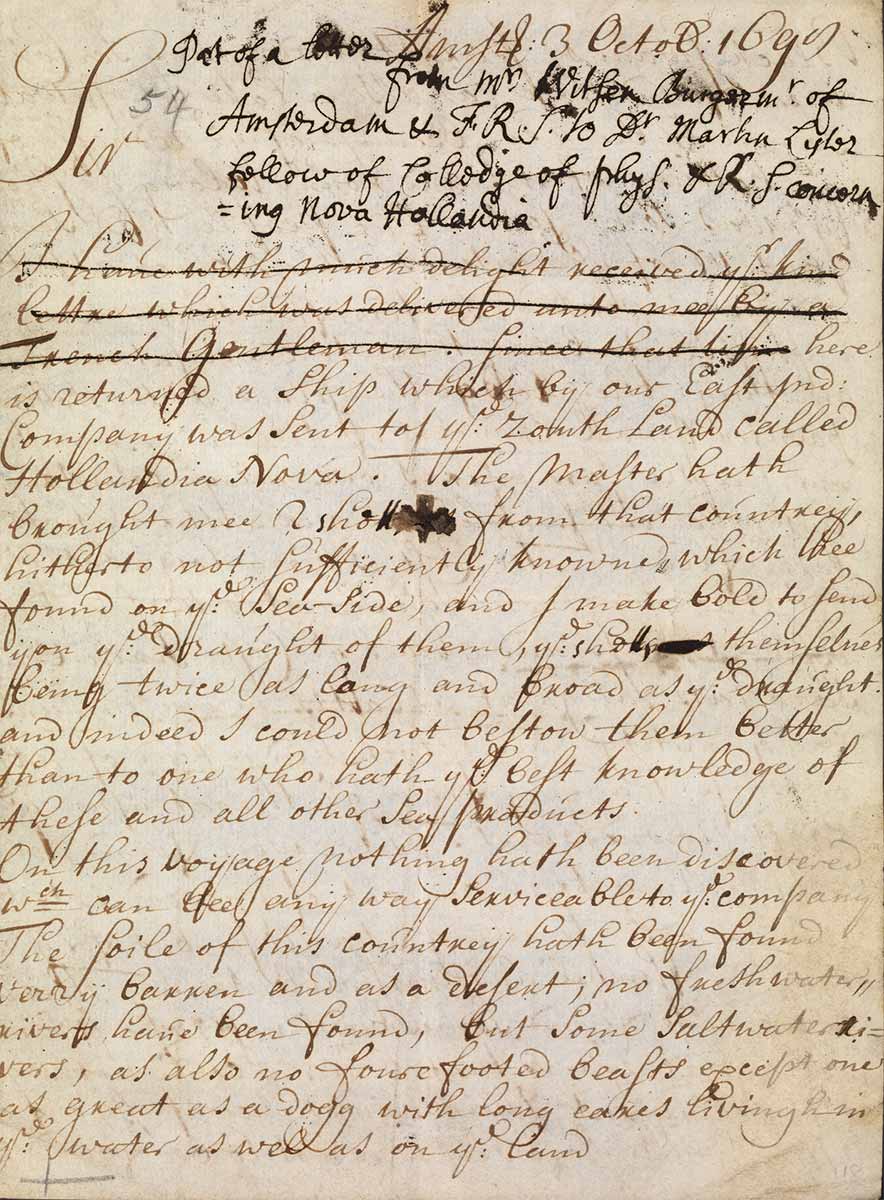 Amstd: 3 Octob: 1698
Part of a letter
from Mr Witsen Burgermr. of
54
Sir
Amsterdam & F.R.S. to Dr. Martin Lyster
fellow of Colledge of phys. & R. S. concern
=ing Nova Hollandia
I haue with much delight received yr. kind
lettre which was delivered unto mee by a
French Gentleman. Since that time here
is returned a ship which by our East Ind:
Company was sent to ye. Zouth Land called
Hollandia Nova. The Master hath
brought mee 2 shells from that countrey,
hitherto not sufficiently knowne, which hee
found on ye. Sea-Side, and I make bold to send
you ye. draught of them, ye. shells themselues
being twice as long and broad as ye. draught.
and indeed I could not bestow them better
than to one who hath ye. best knowledge of
these and all other Sea products.
On this voyage nothing hath been discovered
wch can bee any way serviceable to ye. company
The soile of this countrey hath been found
verry barren and as a desert; no freshwater,,
rivers haue been found, but some saltwater ri=
vers, as also no fourefooted beasts except one
as great as a dogg with long eares livingh in
ye. water as wel as on ye. land
118